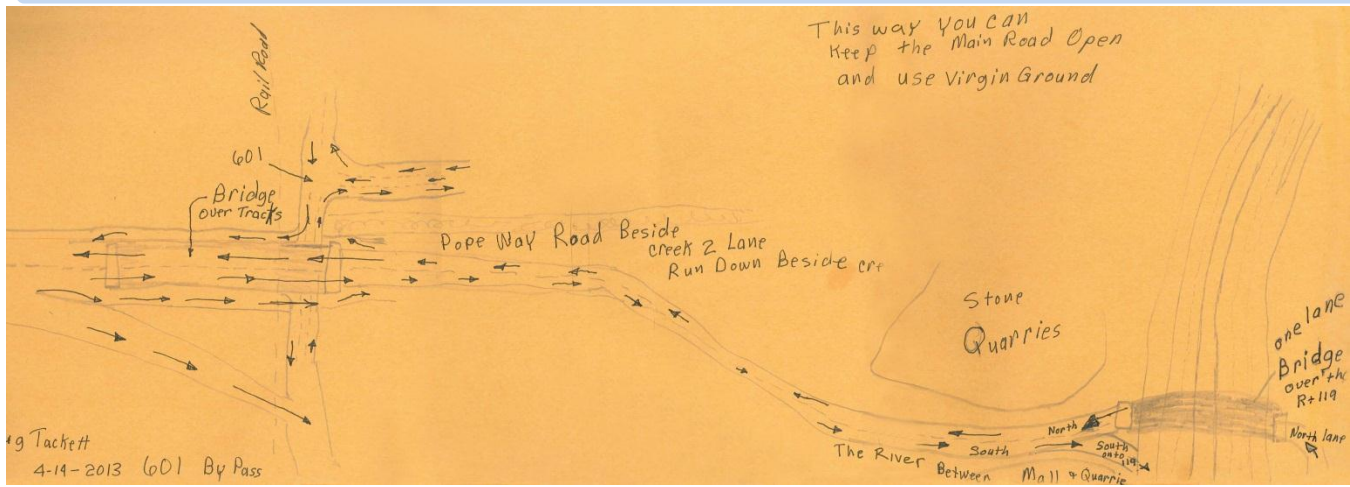 This way you can
Keep the Main Road Open
and use Virgin Ground
Rail Road
601
Bridge
over Tracks
Pope Way Road Beside
creek 2 Lane
Run Down Beside cre
Stone
Quarries
one lane
Bridge
over the
Rt 119
North lane
North
South
South
onto
119
The River Between Mall & Quarrie
ug Tackett
4-14-2013 601 By Pass